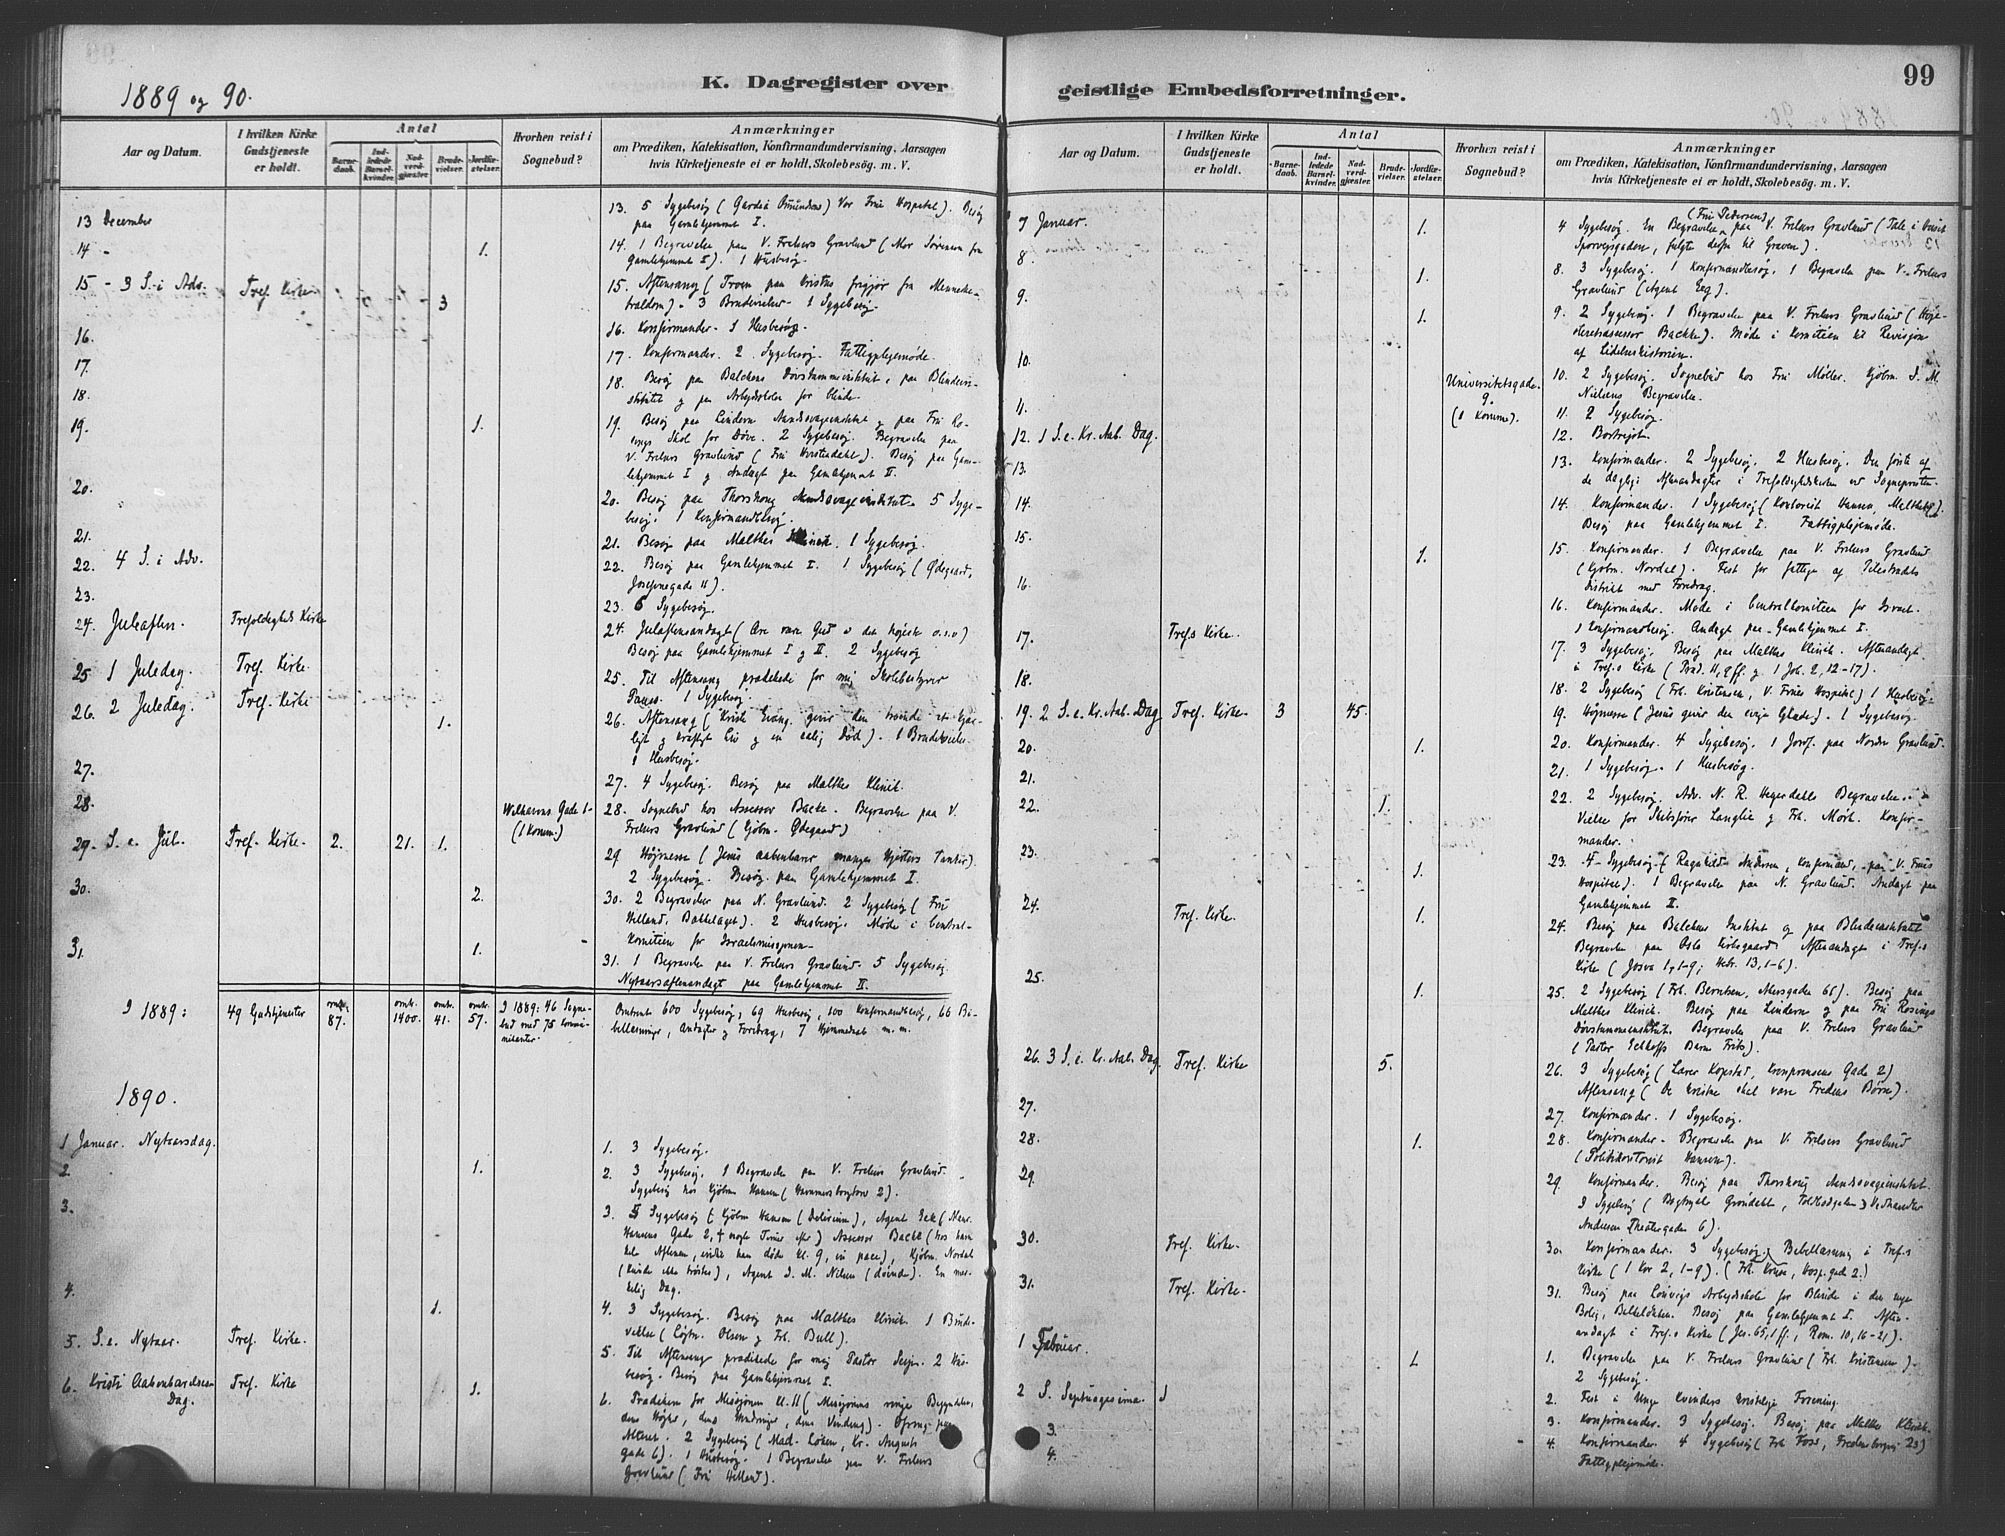 1889 og 90.
K. Dagregister over
Aar og Datum.
I hvilken Kirke Gudstjeneste er holdt.
Antal
Barne-daab.
Ind-ledede Barsel-kvinder.
Nad-verd-gjæster.
Brude-vielser.
Jordfæ-stelser.
Hvorhen reist i Sognebud?
Anmærkninger
om Prædiken, Katekisation, Konfirmandundervisning, Aarsagen
hvis Kirketjeneste ei er holdt, Skolebesög. m. V.
13 December
13. 5 Sygebesøg ( Vor Frue Hospital). Besøg
paa Gamlehjemmet I.
14 - 1.
14. 1 Begravelse paa V. Frelsers Gravlund (Mor Sørensen fra
Gamlehjemmet I). 1 Husbesøg.
15 - 3 S. i Adv. Tref. Kirke 3
15. Aftensang (Troen paa Kristus frigjør fra Menneske-
traldom). 3 Brudevielser. 1 Sygebesøg.
16.
16. Konfirmander. 1 Husbesøg.
17.
17. Konfirmander. 2 Sygebesøg. Fattigplejemøde.
18.
18. Besøg paa Balchens Døvstummeinstitut, paa Blindein-
stitutet og paa Arbejdsskolen for blinde.
19. 1.
19. Besøg paa Lindern Aandssvageinstitut og paa Frk Ro-
sings Skole for Døve. 2 Sygebesøg. Begravelse paa
V. Frelsers Gravlund ( ). Besøg paa Gam-
lehjemmet I og Andagt paa Gamlehjemmet II.
20.
20. Besøg paa Thorshoug Aandssvageinstitut. 5 Syge-
besøg. 1 Konfirmandbesøg.
21.
21. Besøg paa Malthes Klinik. 1 Sygebesøg.
22. 4 S. i Adv.
22. Besøg paa Gamlehjemmet I. 1 Sygebesøg (Ødegaard,
Josefinegade 11).
23.
23. 6 Sygebesøg.
24. Juleaften. Trefoldigheds Kirke
24. Julaftensandagt (Ære være Gud i det højeste o.s.v)
Besøg paa Gamlehjemmet I og II. 2 Sygebesøg
25 1 Juledag. Tref. Kirke.
25. Til Aftensang prædikede for mig Skolebestyrer
Pauss. 1 Sygebesøg.
26. 2 Juledag. Tref. Kirke 1.
26. Aftensang (Kristi Evang. giver den troende et
og kraftigt Liv og en salig Død). 1 Brudevielse.
1 Husbesøg.
27.
27. 4 Sygebesøg. Besøg paa Malthes Klinik.
28. Welhavens Gade 1 (1 Komm.)
28. Sognebud hos Assessor Backe. Begravelse paa V.
Frelsers Gravlund (Kjøbm. Ødegaard)
29. S. e. Jul. Tref. Kirke. 2. 21. 1.
29 Højmesse (Jesus aabenbarer manges Hjerters Tanker).
2 Sygebesøg. Besøg paa Gamlehjemmet I.
30. 2.
30. 2 Begravelser paa N. Gravlund. 2 Sygebesøg (Fru
Helland, Bakkelaget). 2 Husbesøg. Møde i Central-
komiteen for Israelsmissionen.
31. 1.
31. 1 Begravelse paa V. Frelsers Gravlund. 5 Sygebesøg.
Nytaarsaftenandagt paa Gamlehjemmet II.
I 1889: 49 Gudstjenester omtr. 87. omtr. 1400. omtr. 41. omtr. 57. I 1889: 46 Sogne-bud med 75 kommu-nikanter.
Omtrent 600 Sygebesøg; 69 Husbesøg, 100 Konfirmandbesøg, 66 Bi-
bellæsninger, Andagter og Foredrag, 7 Hjemmedaab m. m.
1890.
1 Januar. Nytaarsdag.
1. 3 Sygebesøg.
2. 1.
2. 3 Sygebesøg. 1 Begravelse paa V. Frelsers Gravlund.
Sygebesøg hos Kjøbm Hansen (Hammersborgtorv 2).
3.
3. 5 Sygebesøg (Kjøbm Hansen (Delirium), Agent
Hansens Gade 2, + nogle Timer efter) Assessor Backe (hos ham
Aftenen, inden han døde kl. 9, in pace), Kjøbm. Nordal
(kunde ikke trøstes), Agent J. M. Nielsen (døende). En mær-
kelig Dag.
4. 1.
4. 3 Sygebesøg. Besøg paa Malthes Klinik. 1 Brude-
vielse (Løjtn. Olsen og Frk. Bull).
5. S. e. Nytaar. Tref. Kirke.
5. Til Aftensang prædikede for mig Pastor . 2 Hus-
besøg. Besøg paa Gamlehjemmet I.
6. Kristi Aabenbarelses-Dag. Tref. Kirke 1.
6. Prædiken for Missionen kl. 11 (Missionens ringe Begyndelse,
dens Højhed, dens , dens Vinding). Ofring paa
Alteret. 2 Sygebesøg (Mad. Løken, Kr. Augusts
gade 6). 1 Husbesøg. 1 Begravelse paa V. Frelsers
Gravlund (Fru Helland).
geistlige Embedsforretninger.
99
Aar og Datum.
I hvilken Kirke Gudstjeneste er holdt.
Antal
Barne-daab.
Ind-ledede Barsel-kvinder.
Nad-verd-gjæster.
Brude-vielser.
Jordfæ-stelser.
Hvorhen reist i Sognebud?
Anmærkninger
om Prædiken, Katekisation, Konfirmandundervisning, Aarsagen
hvis Kirketjeneste ei er holdt, Skolebesög. m. V.
7 Januar. 1.
4 Sygebesøg. En Begravelse (Fru Pedersen) paa V. Frelsers Gravlund (Tale i Huset
Sporvejsgaden, fulgte derfra til Graven).
8. 1.
8. 3 Sygebesøg. 1 Konfirmandbesøg. 1 Begravelse paa V. Frelsers
Gravlund (Agent ).
9. 1.
9. 2 Sygebesøg. 1 Begravelse paa V. Frelsers Gravlund (Højeste-
retsassessor Backe). Møde i Komiteen til Revision
af Lidelseshistorien.
10. Universitetsgade. 9. (1 Komm).
10. 2 Sygebesøg. Sognebud hos Fru Møller. Kjøbm. J. M.
Nielsens Begravelse.
11.
11. 2 Sygebesøg.
12. 1 S. e. Kr. Aab. Dag.
12. Bortrejst.
13.
13. Konfirmander. 2 Sygebesøg. 2 Husbesøg. Den første af
de daglige Aftenandagter i Trefoldighedskirken ved Sognepresten.
14.
14. Konfirmander. 1 Sygebesøg (Kontorist Hansen, Malthes).
Besøg paa Gamlehjemmet I. Fattigplejemøde.
15. 1.
15. Konfirmander. 1 Begravelse paa V. Frelsers Gravlund
(Kjøbm. Nordal). Fest for fattige af Pilestrædets
Distrikt med Foredrag.
16.
16. Konfirmander. Møde i Centralkomiteen for Israel.
1 Konfirmandbesøg. Andagt paa Gamlehjemmet I.
17. Tref.s Kirke.
17. 3 Sygebesøg. Besøg paa Malthes Klinik. Aftenandagt
i Tref.s Kirke (Præd. 11, 9 ff. og 1 Joh. 2, 12-17).
18.
18. 2 Sygebesøg (Frk. Kristensen, V. Frues Hospital) 1 Husbesøg.
19. 2 S. e. Kr. Aab. Dag Tref. Kirke. 3 45.
19. Højmesse (Jesus giver den evige Glæde). 1 Sygebesøg.
20. 1.
20. Konfirmander. 4 Sygebesøg. 1 Jordf. paa Nordre Gravlund.
21.
21. 1 Sygebesøg. 1 Husbesøg.
22. 1.
22. 2 Sygebesøg. Adv. N. R. Hegerdahls Begravelse.
Vielse for Skibsfører Langlie og Frk. Mørk. Konfir-
mander.
23. 1.
23. 4 Sygebesøg (Ragnhild Andersen, Konfirmand, paa V. Frues
Hospital). 1 Begravelse paa N. Gravlund. Andagt paa
Gamlehjemmet II.
24. Tref. Kirke. 1.
24. Besøg paa Balchens Institut og paa Blindeinstitutet
Begravelse paa Oslo Kirkegaard. Aftenandagt i Tref.s
Kirke (Josva 1, 1-9; Hebr. 13, 1-6).
25. 1.
25. 2 Sygebesøg (Frk. Berntsen, 66). Besøg paa
Malthes Klinik. Besøg paa Lindern og paa Frk Rosings
Døvstummeinstitut. Begravelse paa V. Frelsers Gravlund
(Pastor Barn Frits).
26. 3 S. e. Kr. Aab. Dag. Tref. Kirke 5.
26. 3 Sygebesøg (Lærer , Kronprinsens Gade 2)
Aftensang (De kristne skal være Fredens Børn).
27.
27. Konfirmander. 1 Sygebesøg.
28. 1.
28. Konfirmander. Begravelse paa V. Frelsers Gravlund
(Politikontorist Hansen).
29.
29. Konfirmander. Besøg paa Thorshoug Aandssvageinstitut.
3 Sygebesøg (Bogtrykker Grøndahl, Toldbodgaden) Vedhandler
Andersen Theatergaden 6).
30. Tref. Kirke.
30. Konfirmander. 3 Sygebesøg. Bibellæsning i Tref.s
Kirke (1 Kor 2, 1-9). (Frk. Kruse, Hosp.gade 2.)
31. Tref. Kirke.
31. Besøg paa Arbejdsskole for Blinde i den nye
Bolig, . Besøg paa Gamlehjemmet I. Aften-
andagt i Tref.s Kirke (Jes. 65, 1 ff; Rom. 10, 16-21).
1 Februar. 1
1. Begravelse paa V. Frelsers Gravlund (Frk. Kristensen).
2 Sygebesøg.
2 S. Septuagesima.
2. Fest i Unge Kvinders kristelige Forening.
3.
3. Konfirmander. 3 Sygebesøg. Besøg paa Malthes Klinik.
4.
4. Konfirmander. 4 Sygebesøg (Frk Foss, 23)
Fattigplejemøde.